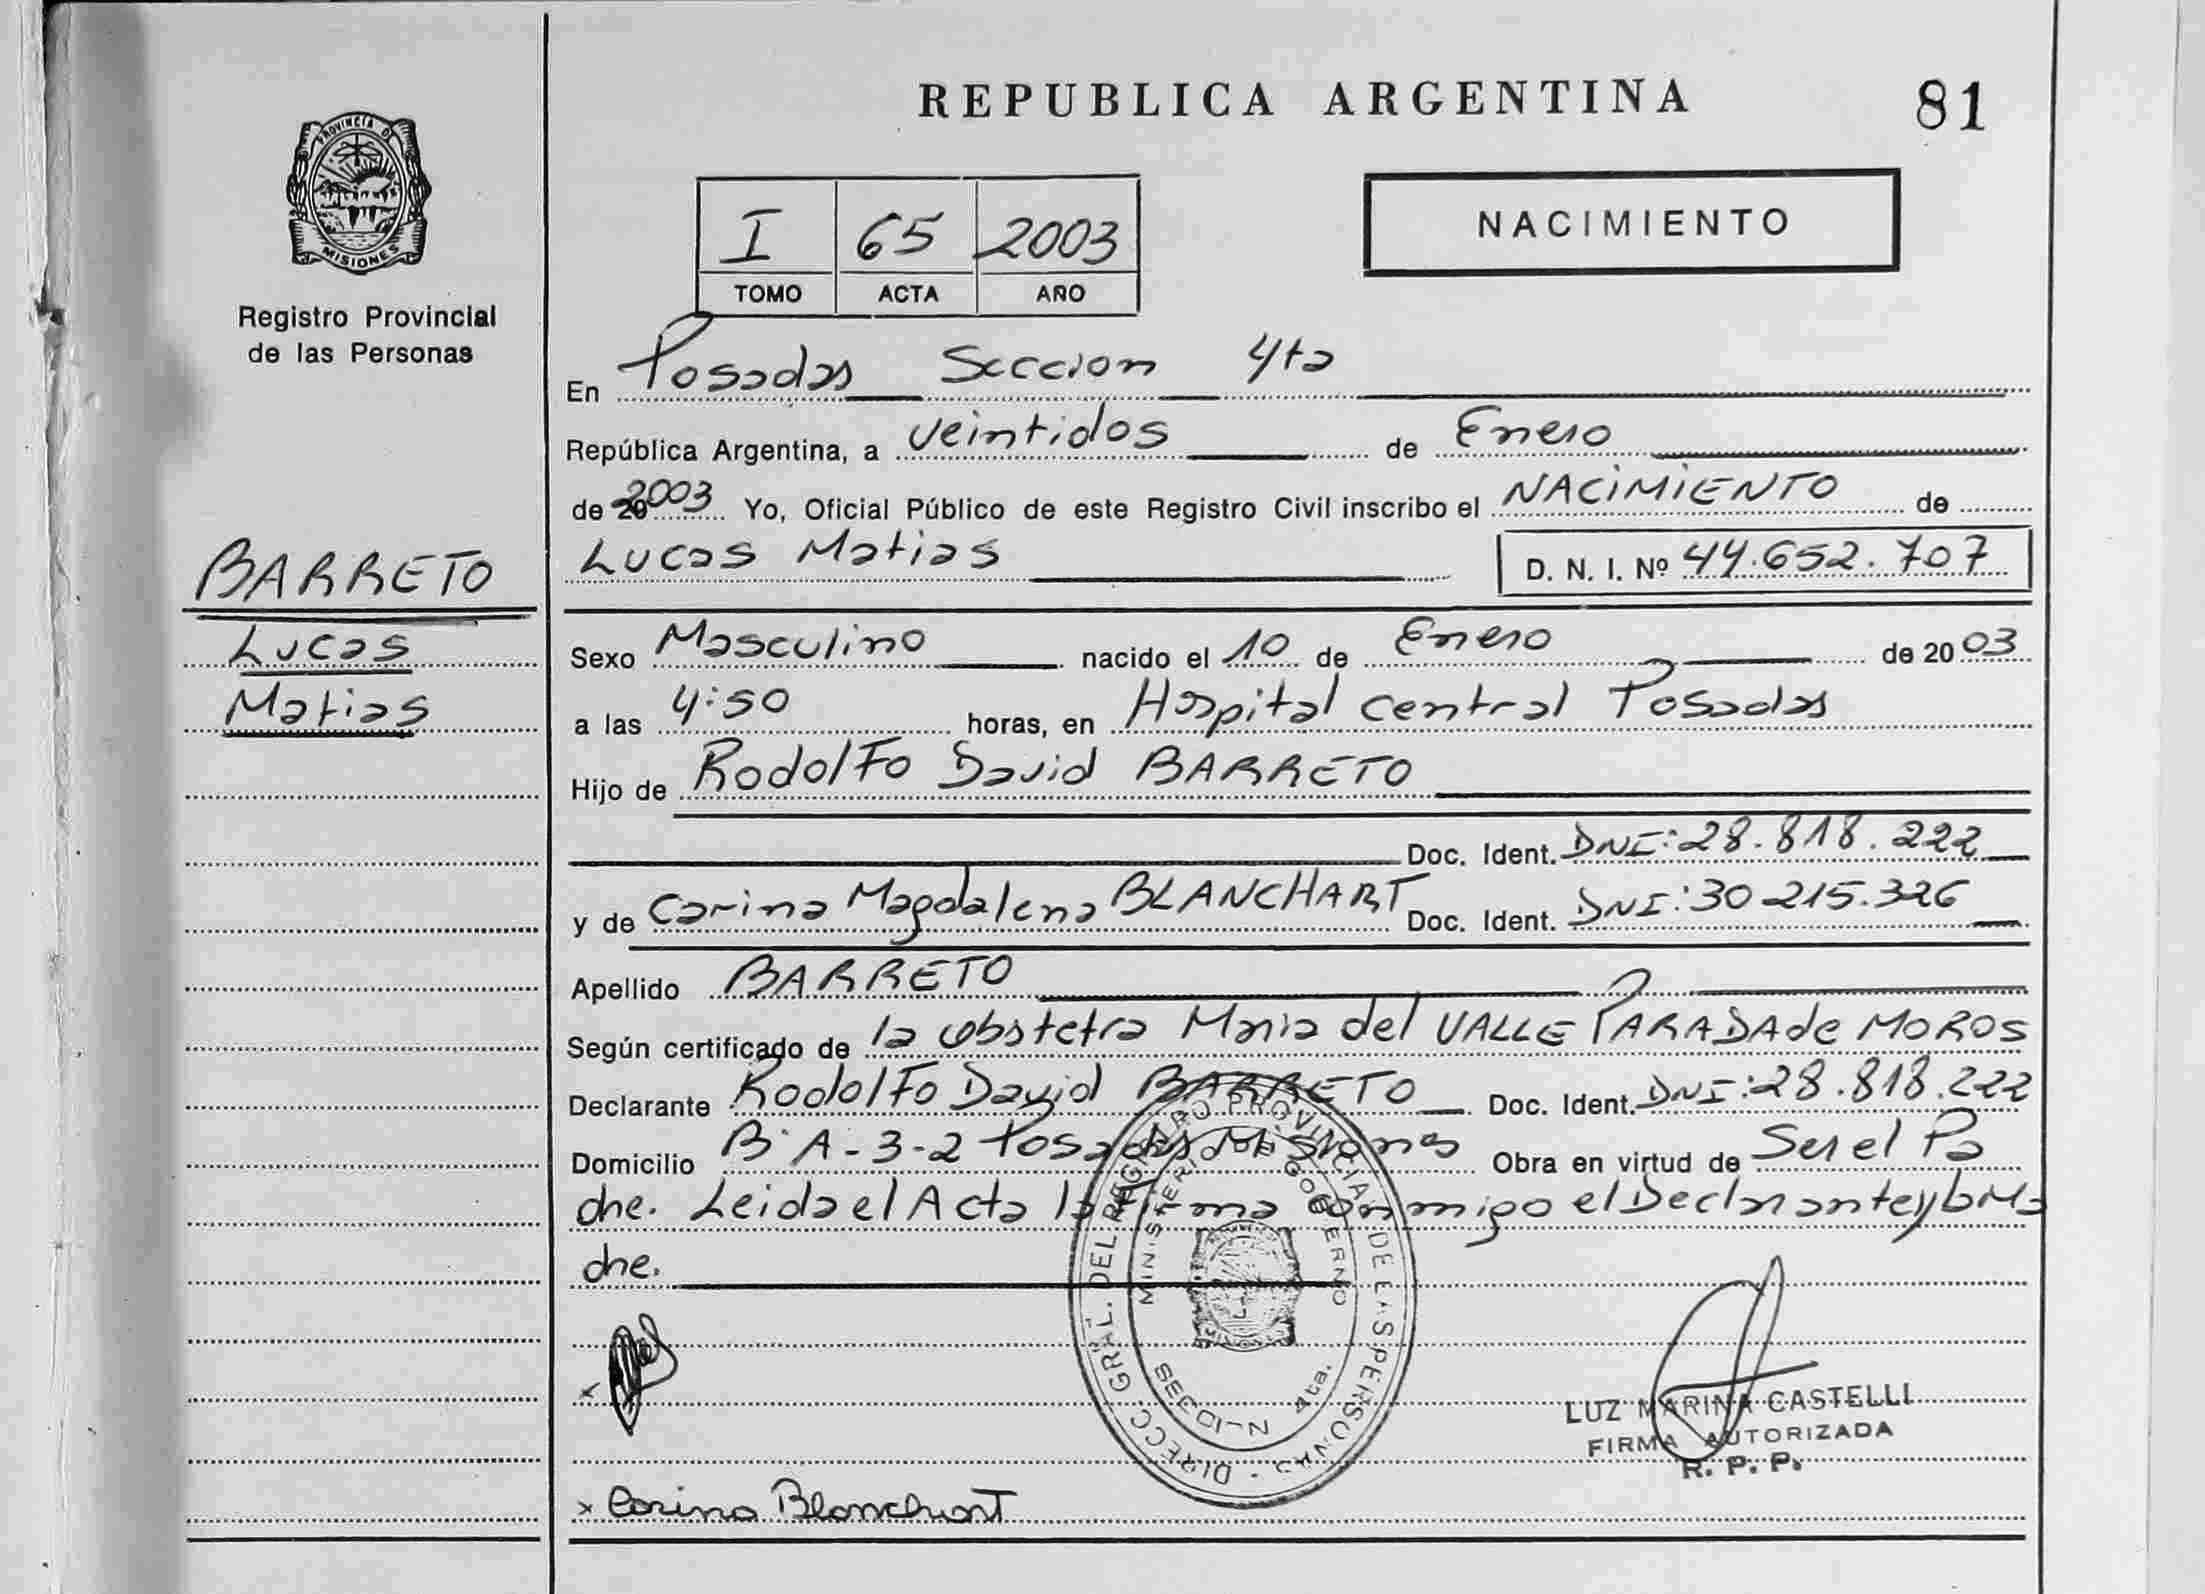 REPUBLICA ARGENTINA
81
PROVINCIA DE
MISIONES
Registro Provincial
de las Personas
I 65 2003
TOMO ACTA AÑO
NACIMIENTO
En Posadas Seccion 4ta
República Argentina, a veintidos de Enero
de 20 2003 Yo, Oficial Público de este Registro Civil inscribo el NACIMIENTO de
Lucas Matias D. N. I. Nº 44.652.707
BARRETO
Lucas
Matias
Sexo Masculino nacido el 10 de Enero de 2003
a las 4:50 horas, en Hospital Central Posadas
Hijo de Rodolfo David BARRETO
Doc. Ident. DNI: 28.818.222
y de Carina Magdalena BLANCHART Doc. Ident. DNI: 30 215.326
Apellido BARRETO
Según certificado de la obstetra Maria del VALLE PARADA de MOROS
Declarante Rodolfo David BARRETO Doc. Ident. DNI: 28.818.222
Domicilio Bº A-3-2 Posadas Misiones Obra en virtud de Ser el Pa
dre. Leida el Acta la Firma conmigo el Declarante y la Ma
dre.
DIRECC. GRAL. DEL REGISTRO PROVINCIAL DE LAS PERSONAS
MINISTERIO DE GOBIERNO
4ta.
LUZ MARINA CASTELLI
FIRMA AUTORIZADA
R. P. P.
x
x Carina Blanchart